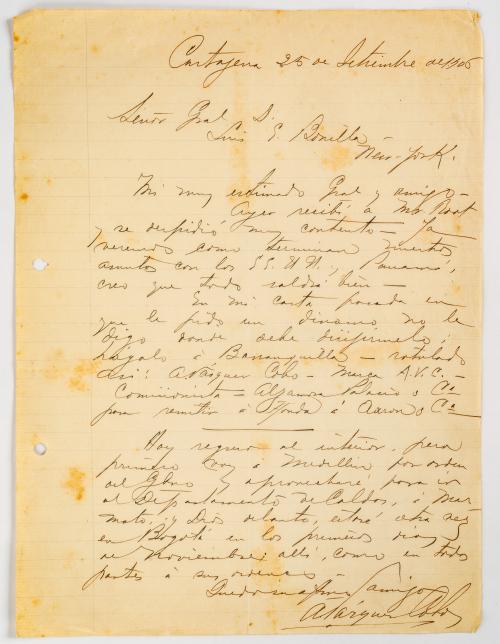 Cartagena 25 de Setiembre de 1906
Señor Gral D.
Luis E. Bonilla –
New-York.
Mi muy estimado Gral y amigo –
Ayer recibí á Mr. Root
y se despidió muy contento – Ya
veremos como terminan nuestros
asuntos con los EE. UU. y Panamá,
creo que todo saldrá bien –
En mi carta pasada en
que le pido un dinamo no le
digo donde debe dirijírmelo;
hágalo á Barranquilla – rotulado
así: A Vasquez Cobo – Marca A.V.C. –
Comisionista – Alejandro Palacio & Ca
para remitir á Honda á Aaron & Ca
Hoy regreso al interior, pero
primero voy á Medellin por orden
del Gbno y aprovecharé para ir
al Departamento de Caldas, á Mar-
mato, y Dios delante, estaré otra vez
en Bogotá en los primeros dias
de Noviembre; allí, como en todas
partes á sus ordenes –
Quedo su afmo amigo
A Vasquez Cobo